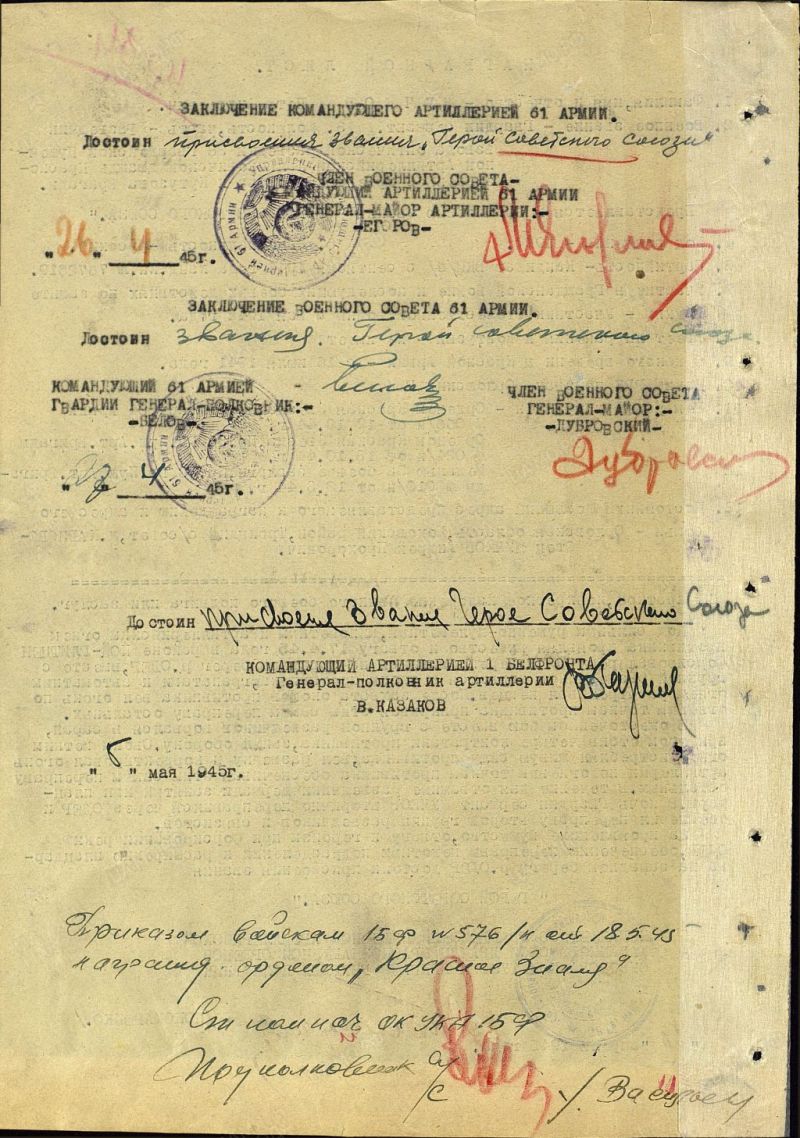 ЗАКЛЮЧЕНИЕ КОМАНДУЮЩЕГО АРТИЛЛЕРИЕЙ 61 АРМИИ.
Достоин присвоения звания „Герой Советского Союза"
ЧЛЕН ВОЕННОГО СОВЕТА-
КОМАНДУЮЩИЙ АРТИЛЛЕРИЕЙ 61 АРМИИ
ГЕНЕРАЛ-МАЙОР АРТИЛЛЕРИИ:-
-ЕГОРОВ-
"26" 4 45г.
ЗАКЛЮЧЕНИЕ ВОЕННОГО СОВЕТА 61 АРМИИ.
Достоин звания Герой Советского Союза
КОМАНДУЮЩИЙ 61 АРМИЕЙ -
ГВАРДИИ ГЕНЕРАЛ-ПОЛКОВНИК:-
-БЕЛОВ-
ЧЛЕН ВОЕННОГО СОВЕТА
ГЕНЕРАЛ-МАЙОР:-
-ДУБРОВСКИЙ-
Дубровский
" " 4 45г.
Достоин присвоения звания Героя Советского Союза
КОМАНДУЮЩИЙ АРТИЛЛЕРИЕЙ 1 БЕЛФРОНТА
Генерал-полковник артиллерии
В.КАЗАКОВ
" " мая 1945г.
Приказом войскам 1БФ №576/н от 18.5.45
награжд. орденом „Красное Знамя"
Ст пом нач ОК УКА 1БФ
Подполковник а/с